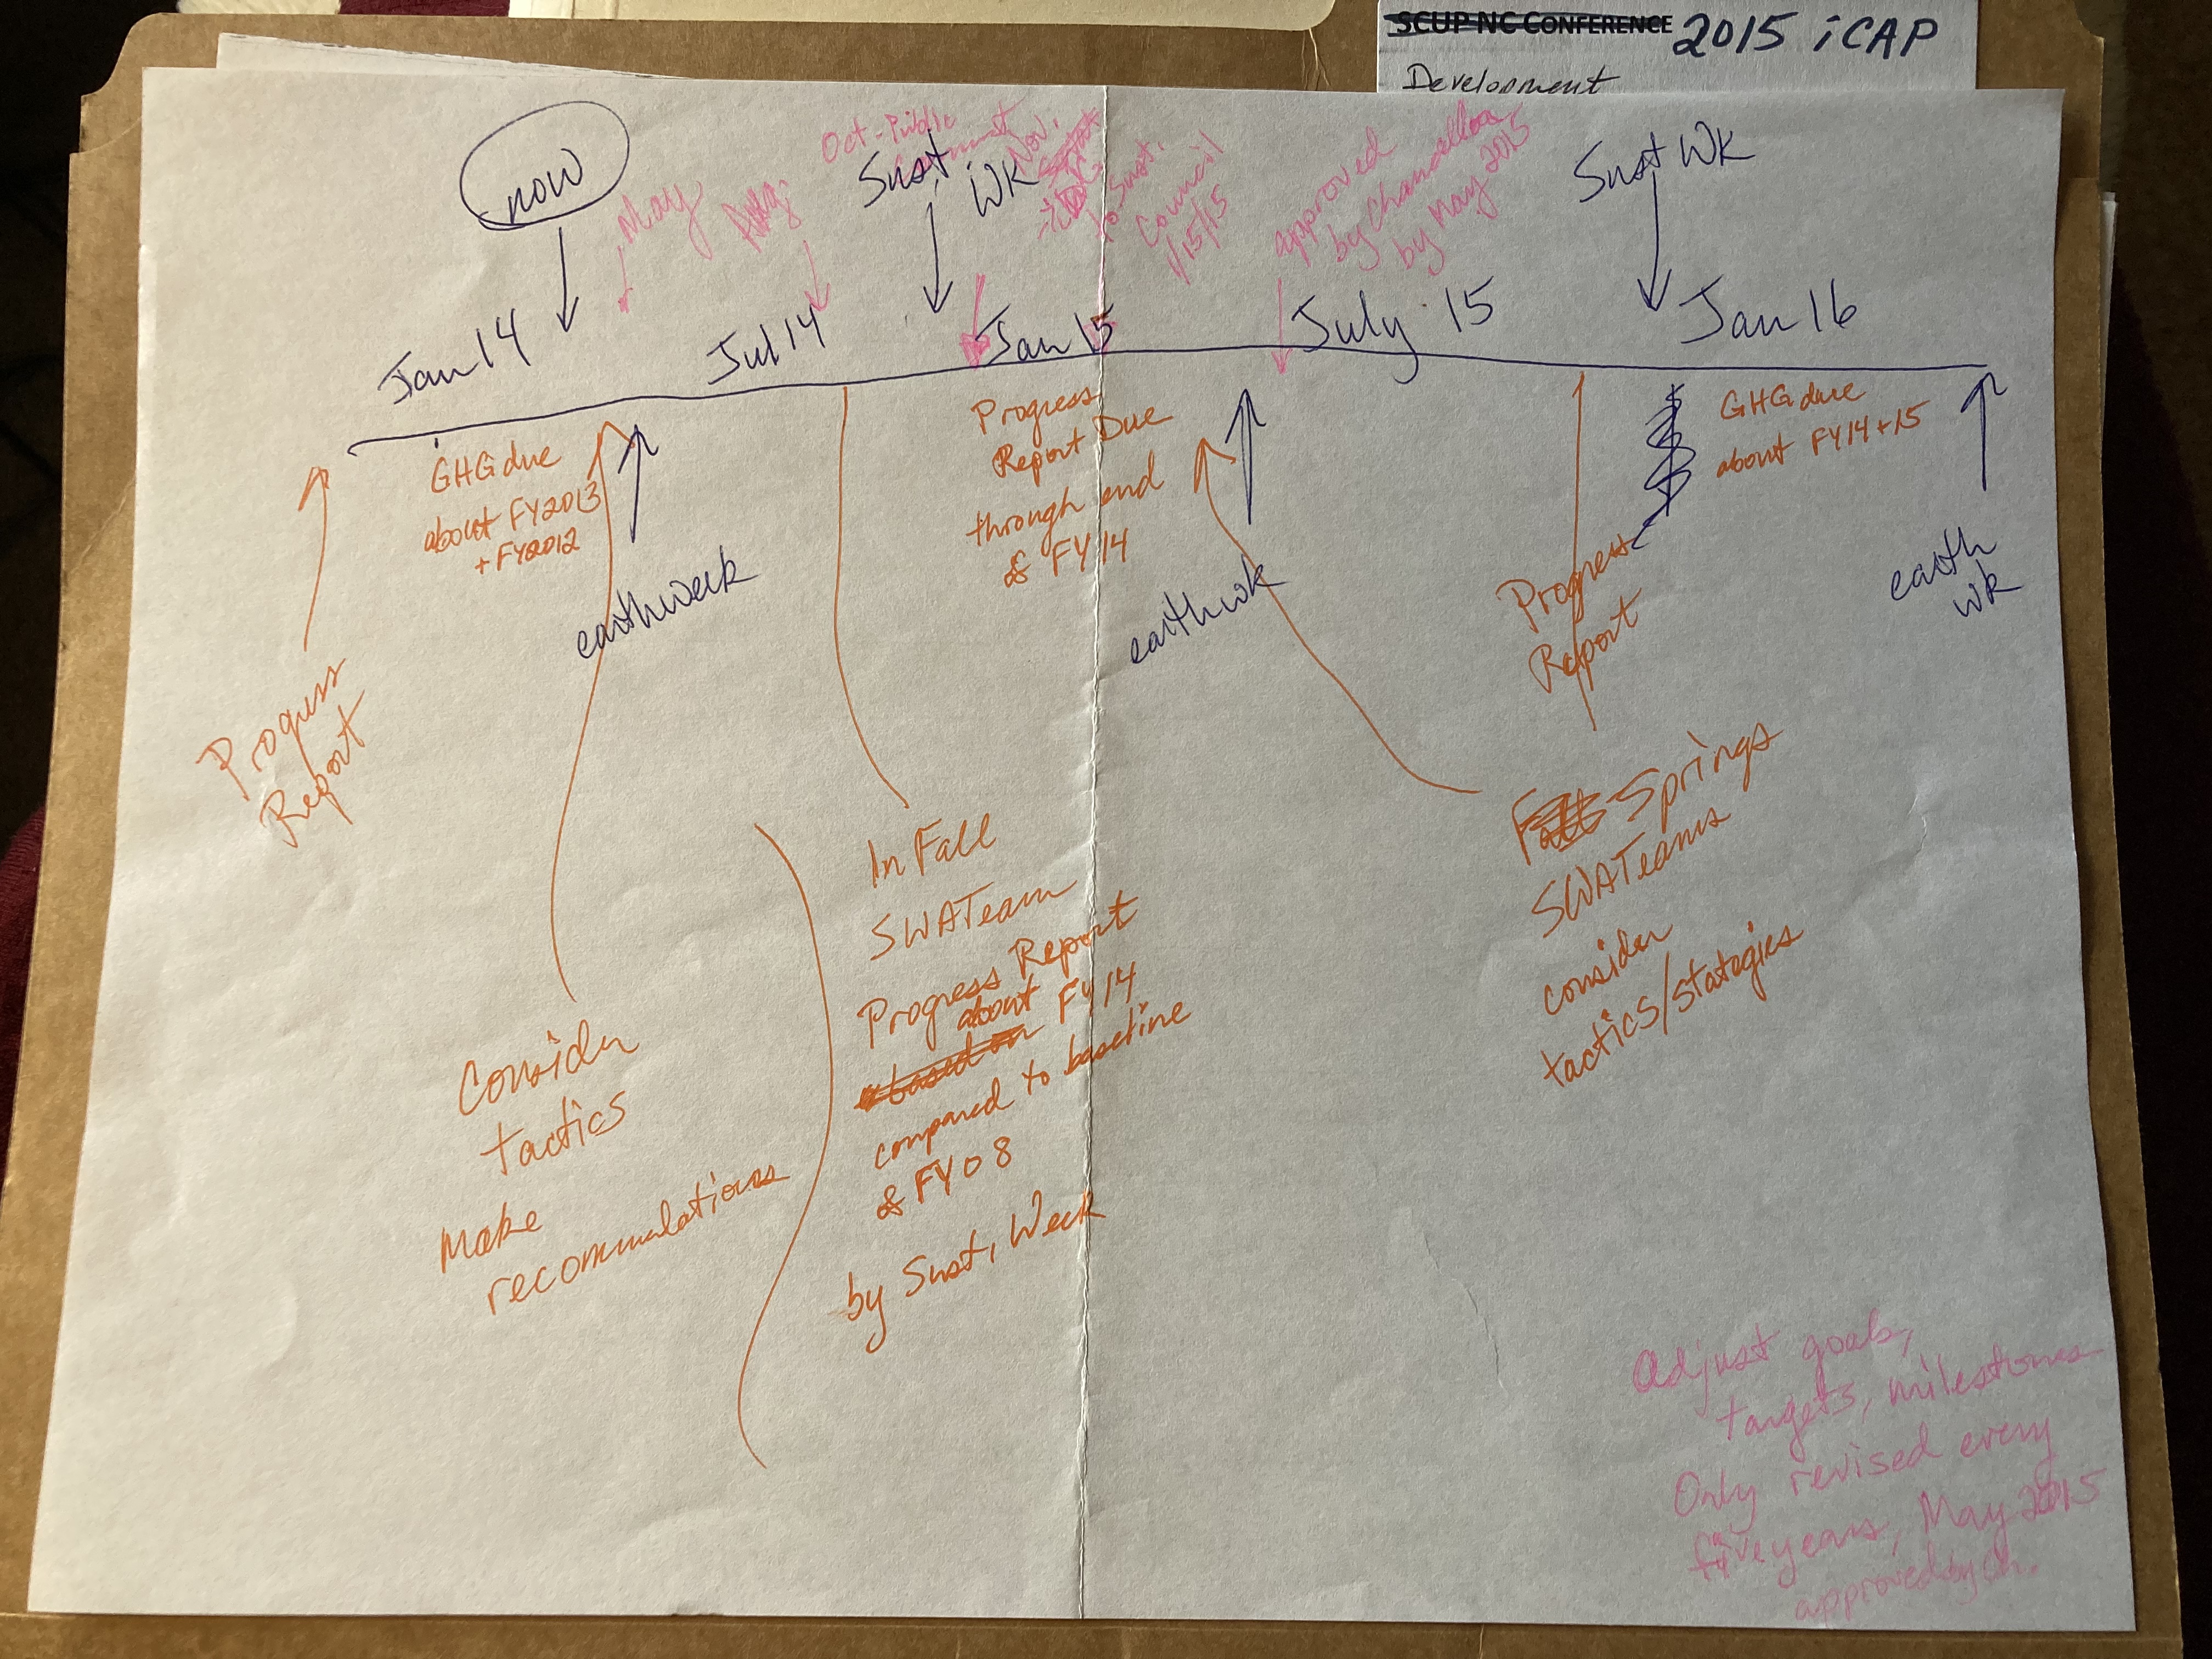 SCUP NC CONFERENCE 2015 iCAP
Development
now
May
Aug
Oct - Public
Comment
Sust
WK
Nov.
to Sust.
Council
1/15/15
approved
by Chancellor
by May 2015
Sust WK
Jan 14
Jul 14
Jan 15
July 15
Jan 16
Progress
Report
GHG due
about FY2013
+ FY2012
earthweek
Progress
Report Due
through end
of FY14
earthwk
Progress
Report
GHG due
about FY14+15
earth
wk
Consider
tactics
Make
recommulations
In Fall
SWATeam
Progress Report
about FY14
based on
compared to baseline
of FY08
by Sust, Week
Fall Springs
SWATeams
consider
tactics/stategies
Adjust goals,
targets, milestones
Only revised every
five years, May 2015
approved by Ch.